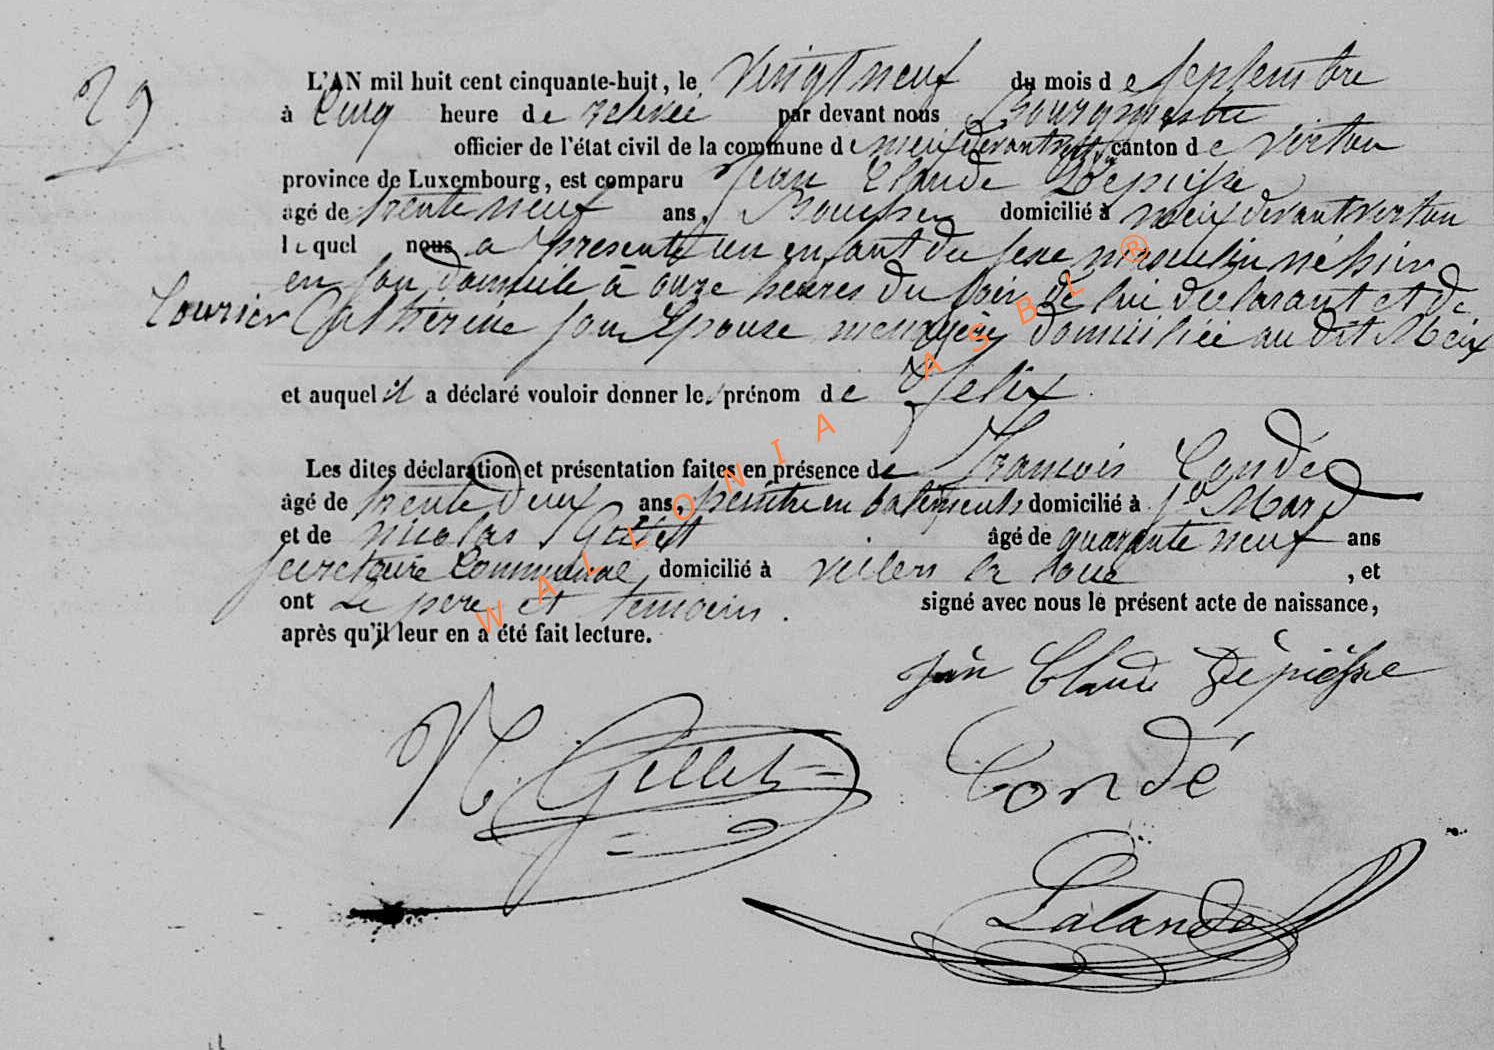 29
L'AN mil huit cent cinquante-huit, le vingt neuf du mois de septembre
à cinq heure de relevée par devant nous Bourgmestre
officier de l'état civil de la commune de meix devant virton canton de virton
province de Luxembourg, est comparu Jean Claude Dépiesse
agé de trente neuf ans, domicilié à meix devant virton
lequel nous a présenté un enfant du sexe masculin né hier
en son domicile à onze heures du soir de lui déclarant et de
Courier Catherine son Epouse menagère domiciliée au dit Meix
et auquel il a déclaré vouloir donner le prénom de Felix
Les dites déclaration et présentation faites en présence de François Condé
âgé de trente deux ans, peintre en batiments domicilié à St Mard
et de nicolas Gillet âgé de quarante neuf ans
secretaire Communal domicilié à villers la loue , et
ont Le père et temoins . signé avec nous le présent acte de naissance,
après qu'il leur en a été fait lecture.
Jean Claude Dépiesse
N. Gillet
Condé
Lalande
WALLONIA ASBL ®